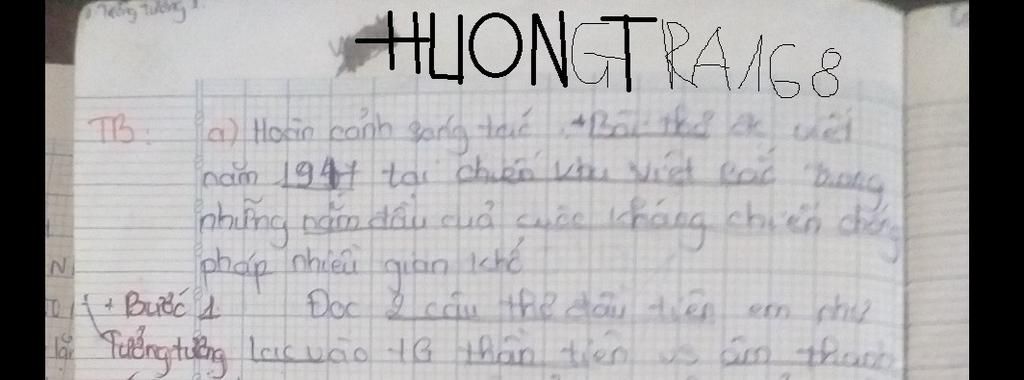 Tưởng tượng
HUONGTRA168
TB: a) Hoàn cảnh sáng tác. + Bài thơ đc viết
năm 1947 tại chiến khu việt bắc trong
những năm đầu của cuộc kháng chiến chống
pháp nhiều gian khổ
+ Bước 1 Đọc 2 câu thơ đầu tiên em như
Tưởng tượng lạc vào TG thần tiên vs âm thanh